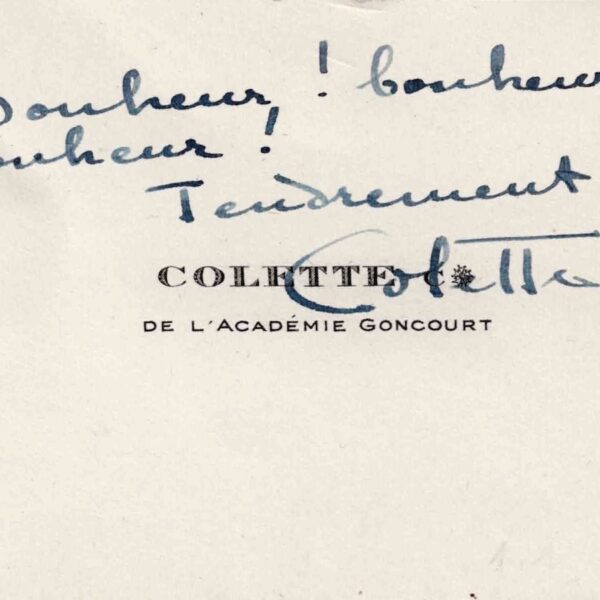 Bonheur, ! bonheur
bonheur !
Tendrement
Colette
COLETTE
DE L'ACADÉMIE GONCOURT